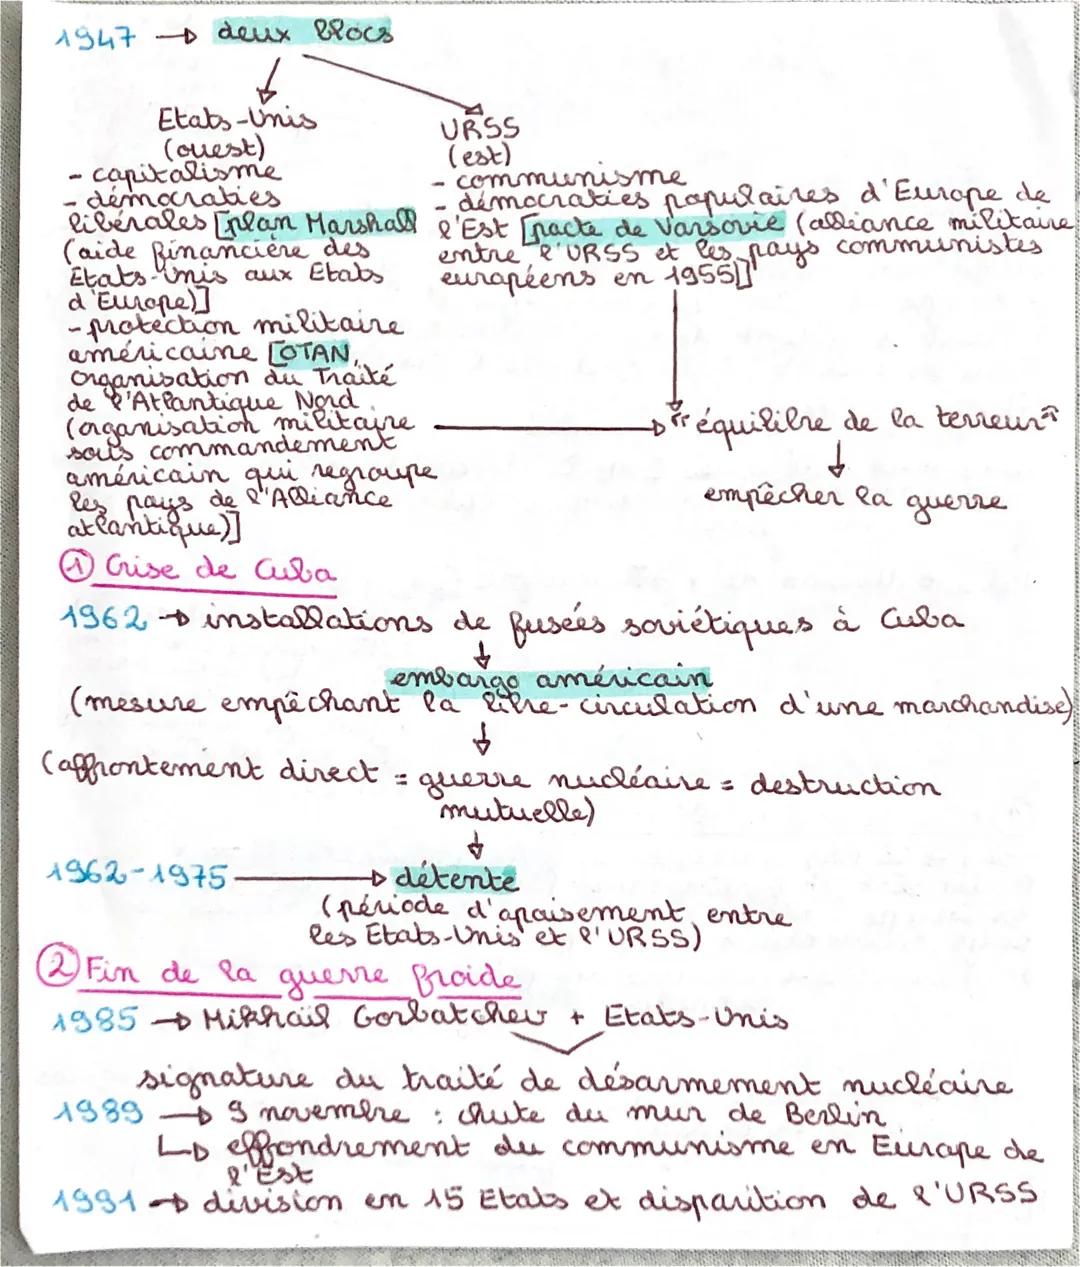 1947 → deux blocs
Etats-Unis
(ouest)
- capitalisme
- démocraties
libérales [plan Marshall
(aide financière des
Etats-Unis aux Etats
d'Europe)]
- protection militaire
américaine [OTAN,
Organisation du Traité
de l'Atlantique Nord
(organisation militaire
sous commandement
américain qui regroupe
les pays de l'Alliance
atlantique)]
URSS
(est)
- communisme
- démocraties populaires d'Europe de
l'Est [pacte de Varsovie (alliance militaire
entre l'URSS et les pays communistes
européens en 1955)]
"équilibre de la terreur"
empêcher la guerre
① Crise de Cuba
1962 → installations de fusées soviétiques à Cuba
embargo américain
(mesure empêchant la libre-circulation d'une marchandise)
(affrontement direct = guerre nucléaire = destruction
mutuelle)
1962-1975 → détente
(période d'apaisement entre
les Etats-Unis et l'URSS)
② Fin de la guerre froide
1985 → Mikhaïl Gorbatchev + Etats-Unis
signature du traité de désarmement nucléaire
1989 → 9 novembre : chute du mur de Berlin
↳ effondrement du communisme en Europe de
l'Est
1991 → division en 15 Etats et disparition de l'URSS